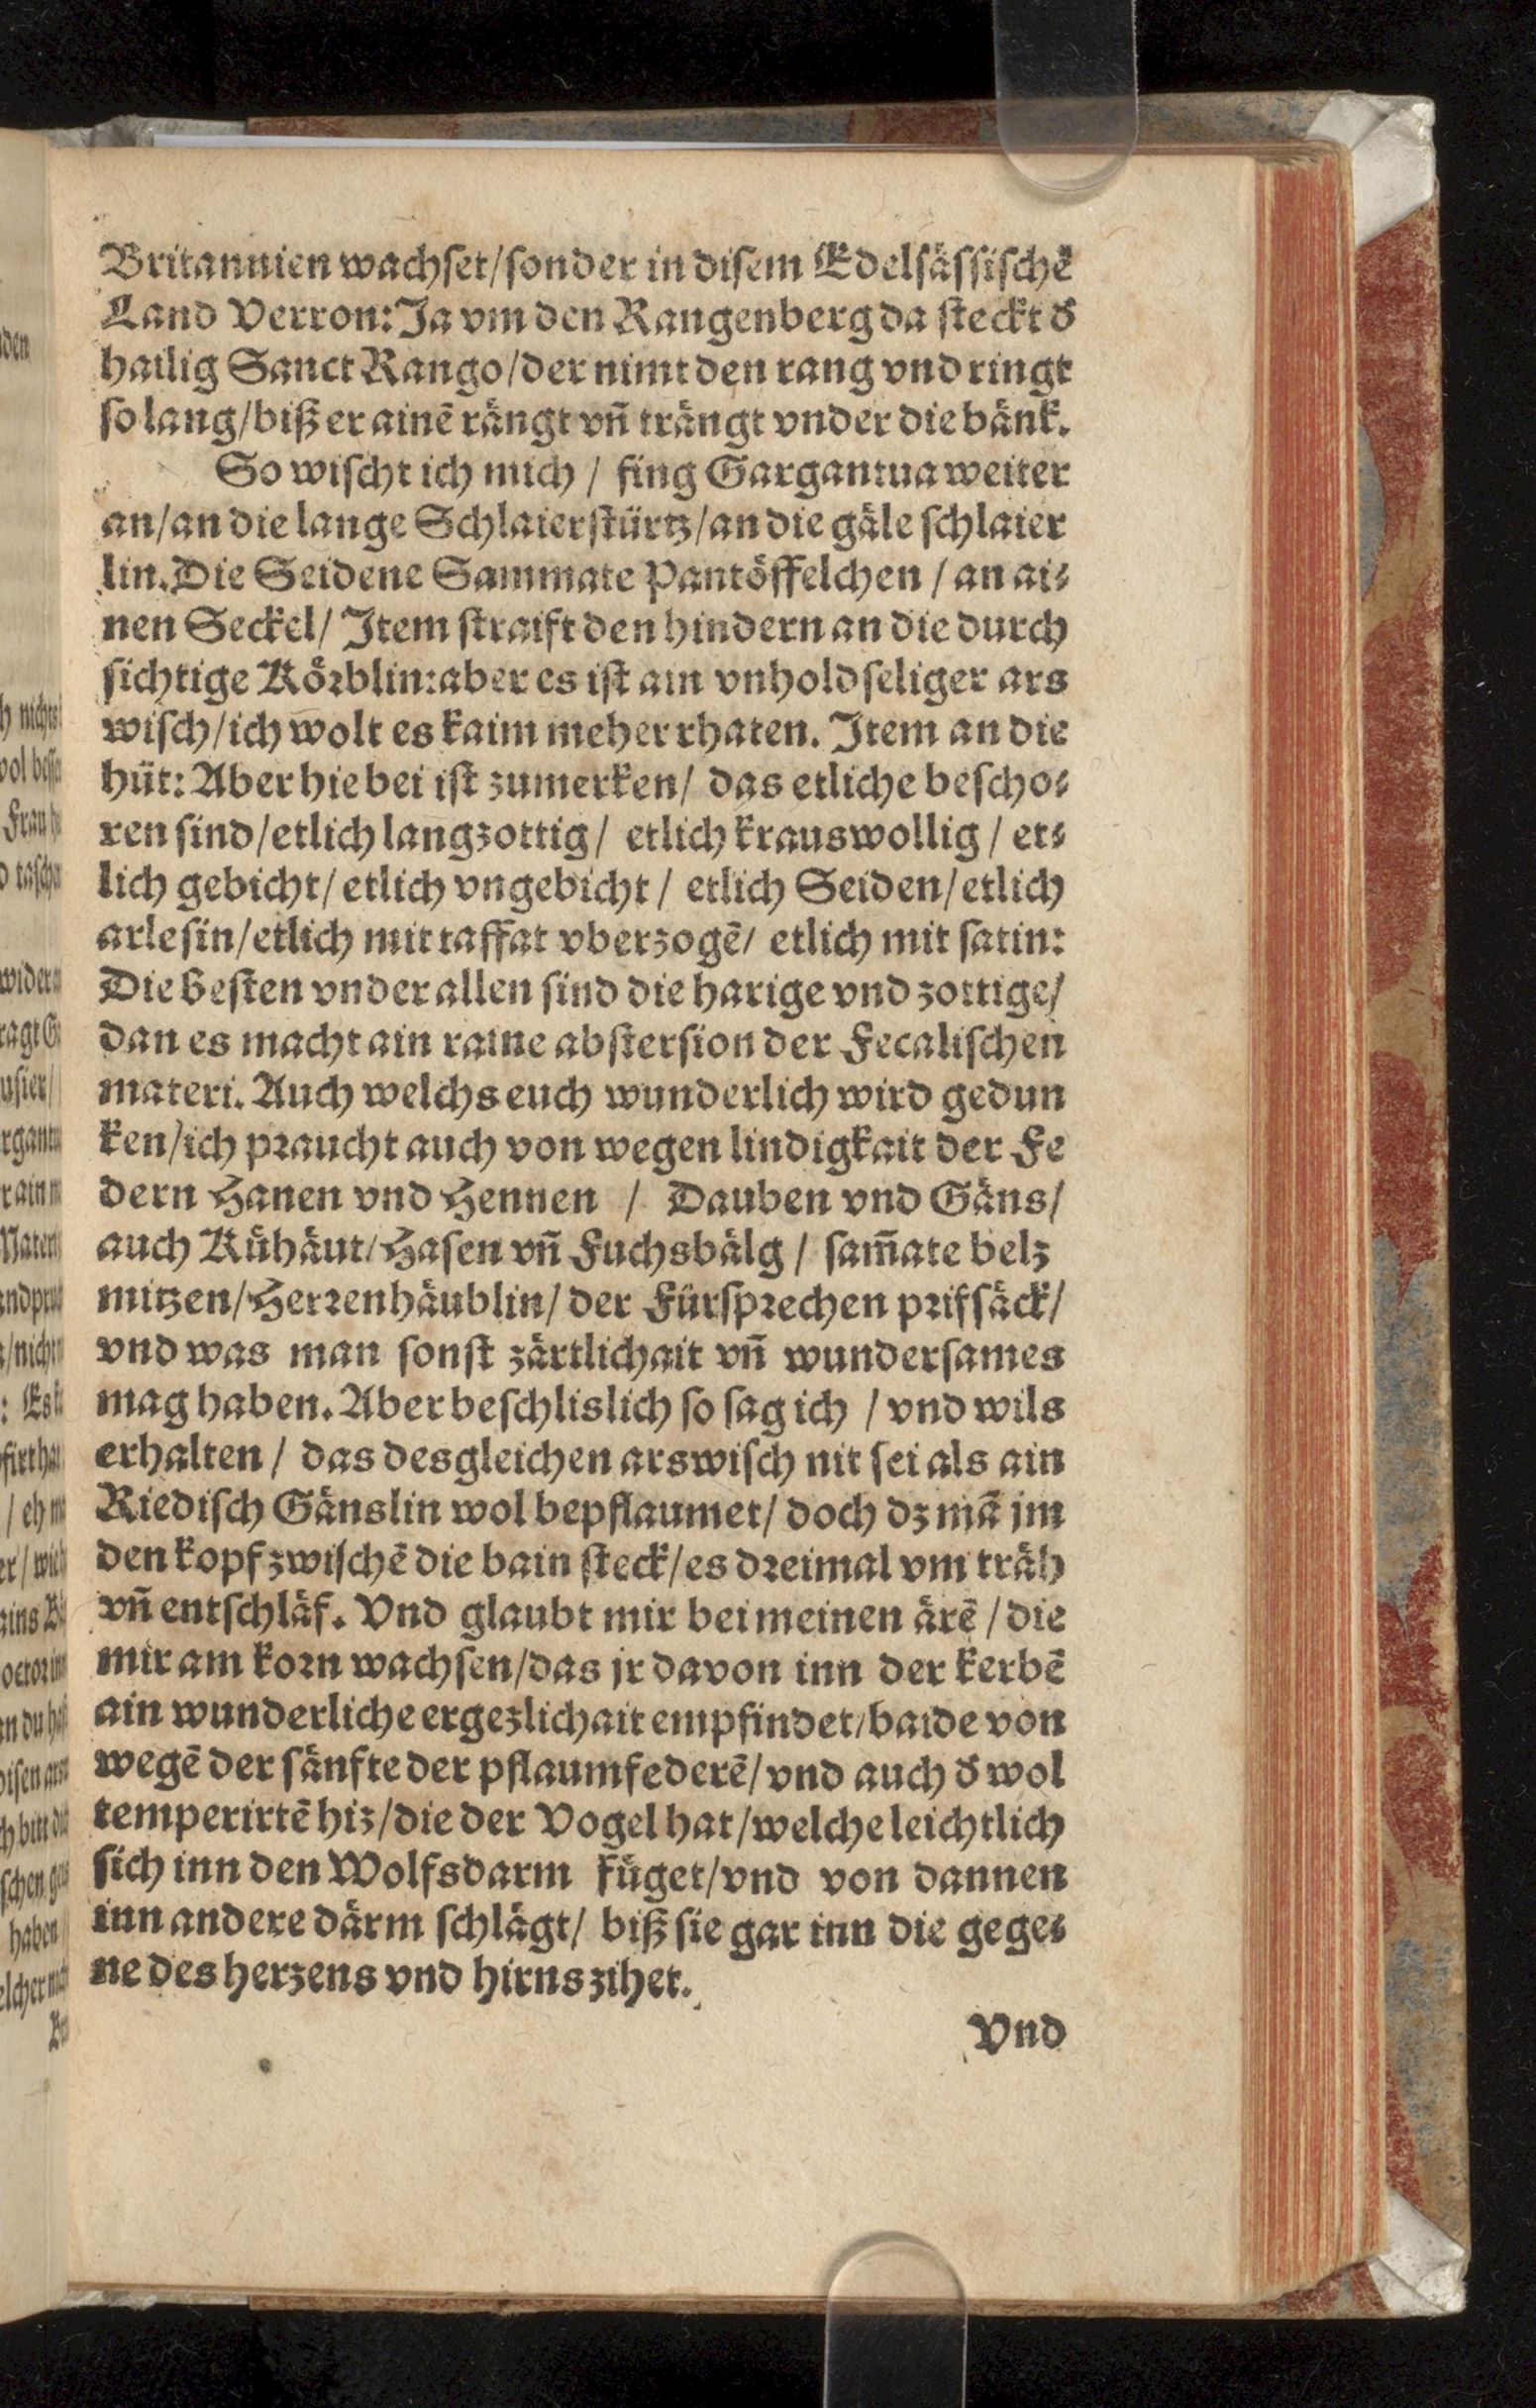 Britannien wachset/sonder in disem Edelsässischẽ
Land Verron: Ja vm den Rangenberg da steckt d̕
hailig Sanct Rango/der nimt den rang vnd ringt
so lang/biß er ainẽ rängt vñ trängt vnder die bänk.
So wischt ich mich / fing Gargantua weiter
an/an die lange Schlaierstürtz/an die gäle schlaier
lin. Die Seidene Sammate Pantöffelchen / an ai⸗
nen Seckel/ Item straift den hindern an die durch
sichtige Körblin: aber es ist ain vnholdseliger ars
wisch/ich wolt es kaim meher rhaten. Item an die
hüt: Aber hie bei ist zumerken/ das etliche bescho⸗
ren sind/etlich langzottig/ etlich krauswollig / et⸗
lich gebicht/ etlich vngebicht / etlich Seiden/etlich
arlesin/etlich mit taffat vberzogẽ/ etlich mit satin:
Die besten vnder allen sind die harige vnd zottige/
dan es macht ain raine abstersion der Fecalischen
materi. Auch welchs euch wunderlich wird gedun
ken/ich praucht auch von wegen lindigkait der Fe
dern Hanen vnd Hennen / Dauben vnd Gäns/
auch Kühäut/Hasen vñ Fuchsbälg / sam̃ate belz
mitzen/Herrenhäublin/ der Fürsprechen prifsäck/
vnd was man sonst zärtlichait vñ wundersames
mag haben. Aber beschlislich so sag ich / vnd wils
erhalten / das desgleichen arswisch nit sei als ain
Riedisch Gänslin wol bepflaumet/ doch dz mã jm
den kopf zwischẽ die bain steck/es dreimal vm träh
vñ entschläf. Vnd glaubt mir bei meinen ärẽ / die
mir am korn wachsen/das jr davon inn der kerbẽ
ain wunderliche ergezlichait empfindet/baide von
wegẽ der sänfte der pflaumfederẽ/vnd auch d̕ wol
temperirtẽ hiz/die der Vogel hat/welche leichtlich
sich inn den Wolfsdarm füget/vnd von dannen
inn andere därm schlägt/ biß sie gar inn die gege⸗
ne des herzens vnd hirns zihet.
Vnd